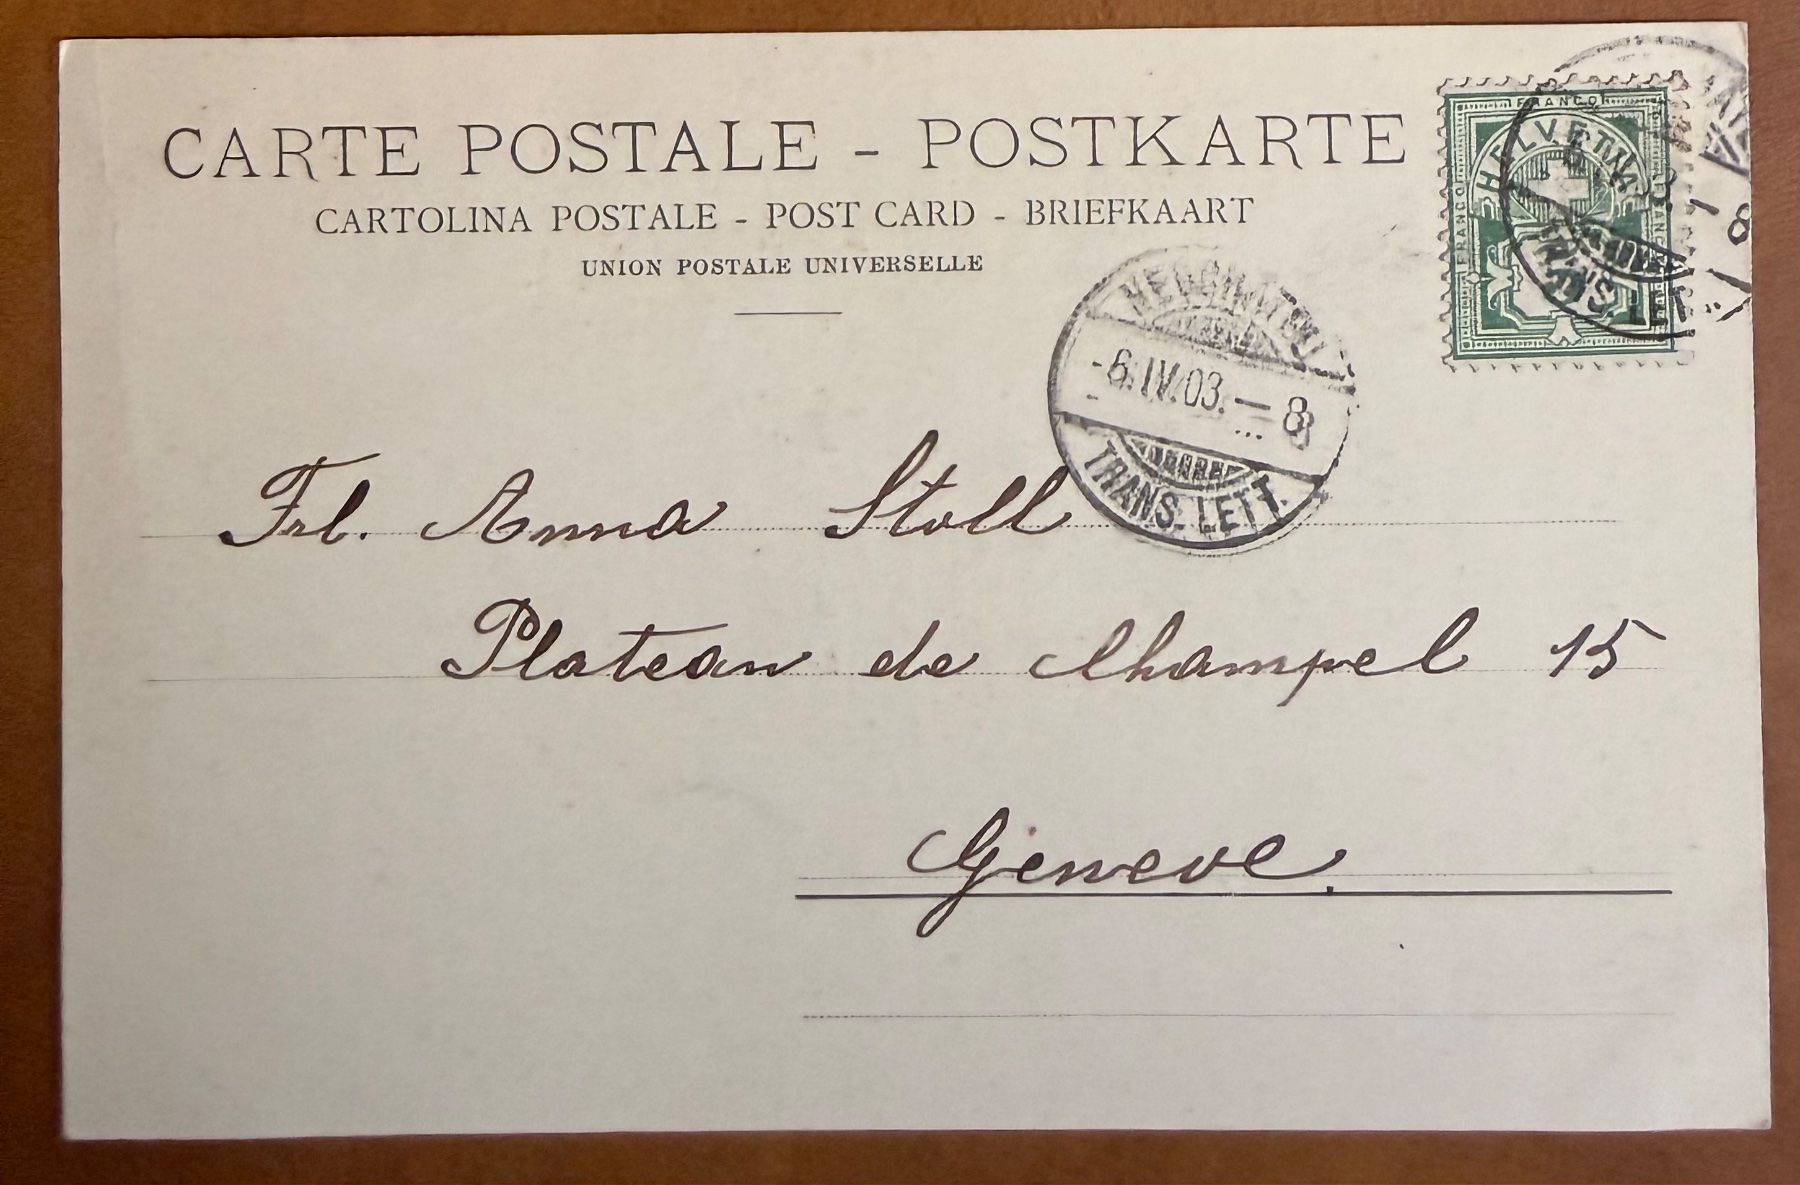 CARTE POSTALE - POSTKARTE
CARTOLINA POSTALE - POST CARD - BRIEFKAART
UNION POSTALE UNIVERSELLE
FRANCO
HELVETIA
FRANCO
-6.IV.03.-8
TRANS. LETT.
TRANS. LETT.
8
Frl. Anna Stoll
Plateau de Champel 15
Geneve.